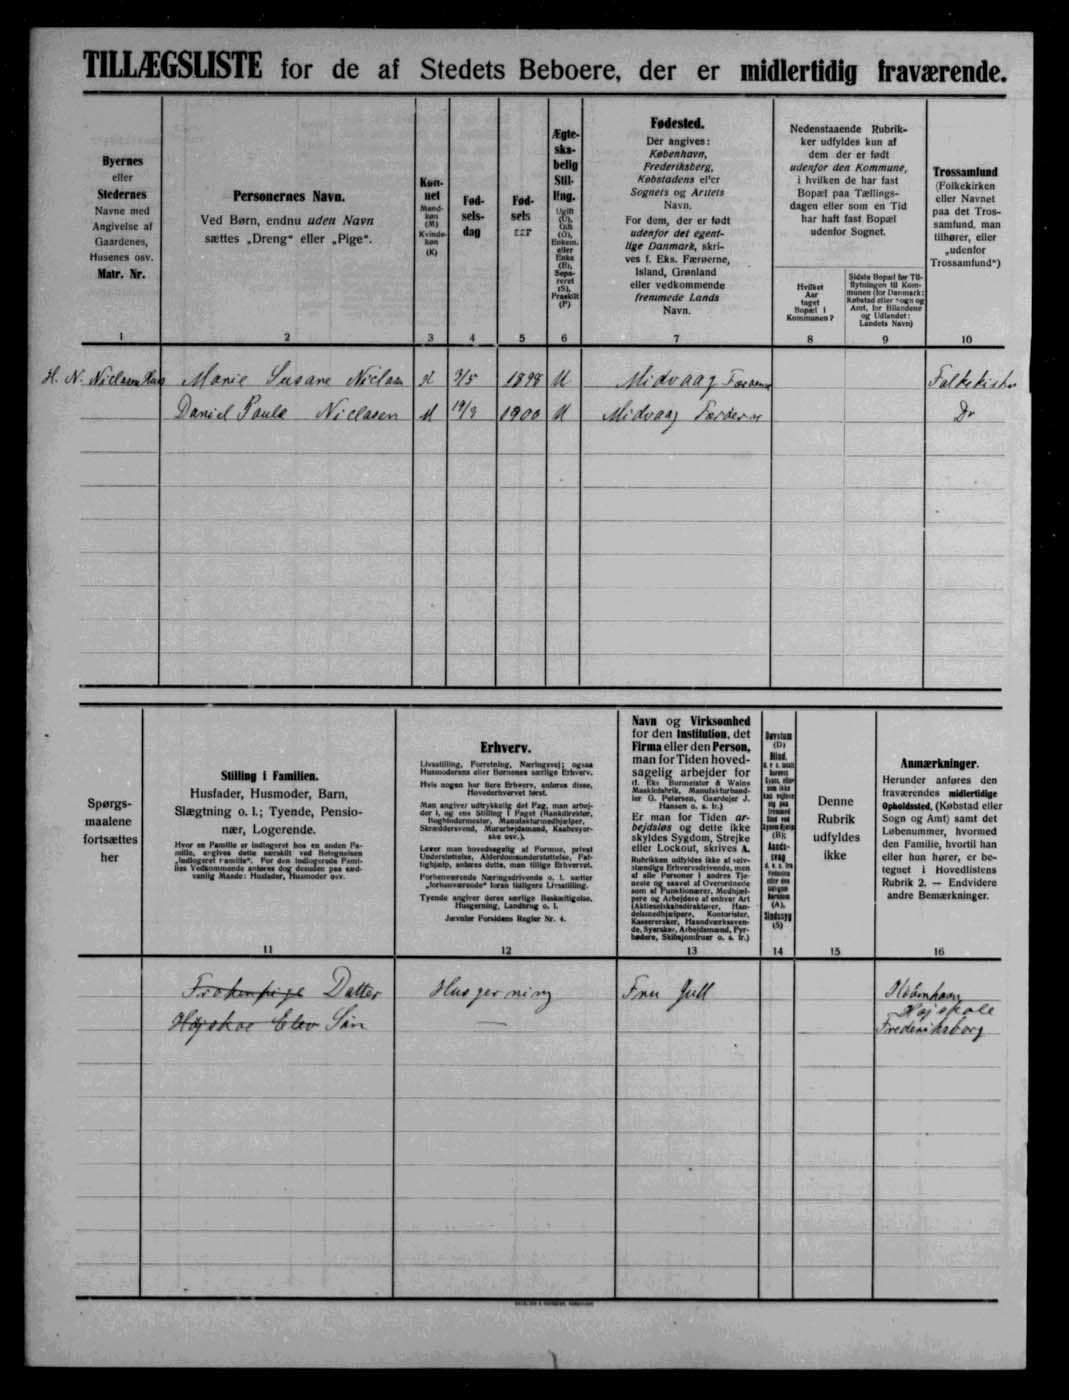 TILLÆGSLISTE for de af Stedets Beboere, der er midlertidig fraværende.
Byernes
eller
Stedernes
Navne med
Angivelse af
Gaardenes,
Husenes osv.
Matr. Nr.
1
Personernes Navn.
Ved Børn, endnu uden Navn
sættes „Dreng“ eller „Pige“.
2
Køn-
net
Mand-
køn
(M)
Kvinde-
køn
(K)
3
Fød-
sels-
dag
4
Fød-
sels
5
Ægte-
ska-
belig
Stil-
ling.
Ugift
(U),
Gift
(G),
Enkem.
eller
Enke
(E),
Sepa-
reret
(S),
Fraskilt
(F)
6
Fødested.
Der angives:
København,
Frederiksberg,
Købstadens eller
Sognets og Amtets
Navn.
For dem, der er født
udenfor det egent-
lige Danmark, skri-
ves f. Eks. Færøerne,
Island, Grønland
eller vedkommende
fremmede Lands
Navn.
7
Nedenstaaende Rubrik-
ker udfyldes kun af
dem der er født
udenfor den Kommune,
i hvilken de har fast
Bopæl paa Tællings-
dagen eller som en Tid
har haft fast Bopæl
udenfor Sognet.
Hvilket
Aar
taget
Bopæl i
Kommunen?
8
Sidste Bopæl før Til-
flytningen til Kom-
munen (for Danmark:
Købstad eller Sogn og
Amt, for Bilandene
og Udlandet:
Landets Navn)
9
Trossamfund
(Folkekirken
eller Navnet
paa det Tros-
samfund, man
tilhører, eller
„udenfor
Trossamfund“)
10
H. N. Niclasens Hus Marie Susane Niclasen K 3/5 1898 U Midvaag Færøerne Folkekirken
Daniel Paule Niclasen M 19/3 1900 U Midvaag Færøerne Do
Spørgs-
maalene
fortsættes
her
Stilling i Familien.
Husfader, Husmoder, Barn,
Slægtning o. l.; Tyende, Pensio-
nær, Logerende.
Hvor en Familie er indlogeret hos en anden Fa-
milie, angives dette særskilt ved Betegnelsen
„indlogeret Familie“. For den indlogerede Fami-
lies Vedkommende anføres dog desuden paa sæd-
vanlig Maade: Husfader, Husmoder osv.
11
Erhverv.
Livsstilling, Forretning, Næringsvej; ogsaa
Husmoderens eller Børnenes særlige Erhverv.
Hvis nogen har flere Erhverv, anføres disse,
Hovederhvervet først.
Man angiver udtrykkelig det Fag, man arbej-
der i, og ens Stilling i Faget (Bankdirektør,
Bogbindermester, Manufakturmedhjælper,
Skræddersvend, Murarbejdsmand, Kasbestyrer-
ske osv.).
Lever man hovedsagelig af Formue, privat
Understøttelse, Alderdomsunderstøttelse, Fat-
tighjælp, anføres dette, man tillige Erhvervet.
Forhenværende Næringsdrivende o. l. sætter
„forhenværende“ foran tidligere Livsstilling.
Tyende angiver deres særlige Beskæftigelse,
Husgerning, Landbrug o. l.
Jævnfør Forsidens Regler Nr. 4.
12
Navn og Virksomhed
for den Institution, det
Firma eller den Person,
man for Tiden hoved-
sagelig arbejder for
(f. Eks Burmeister & Wains
Maskinfabrik, Manufakturhand-
ler G. Petersen, Gaardejer J.
Hansen o. s. fr.)
Er man for Tiden ar-
bejdsløs og dette ikke
skyldes Sygdom, Strejke
eller Lockout, skrives A.
Rubrikken udfyldes ikke af selv-
stændige Erhvervsdrivende, men
af alle Personer i andres Tje-
neste og saavel af Overordnede
som af Funktionærer, Medhjæl-
pere og Arbejdere af enhver Art
(Aktieselskabsdirektører, Han-
delsmedhjælpere, Kontorister,
Kassererske, Haandværkssven-
de, Syersker, Arbejdsmænd, Fyr-
bødere, Skibsjomfruer o. s. fr.)
13
Døvstum
(D)
Blind,
(B);
Aands-
svag
(A),
Sindssyg
(S)
14
Denne
Rubrik
udfyldes
ikke
15
Anmærkninger.
Herunder anføres den
fraværendes midlertidige
Opholdssted, (Købstad eller
Sogn og Amt) samt det
Løbenummer, hvormed
den Familie, hvortil han
eller hun hører, er be-
tegnet i Hovedlistens
Rubrik 2. — Endvidere
andre Bemærkninger.
16
Datter Husgerning Fru Jull København
Højskole Elev Søn — Højskole
Frederiksborg